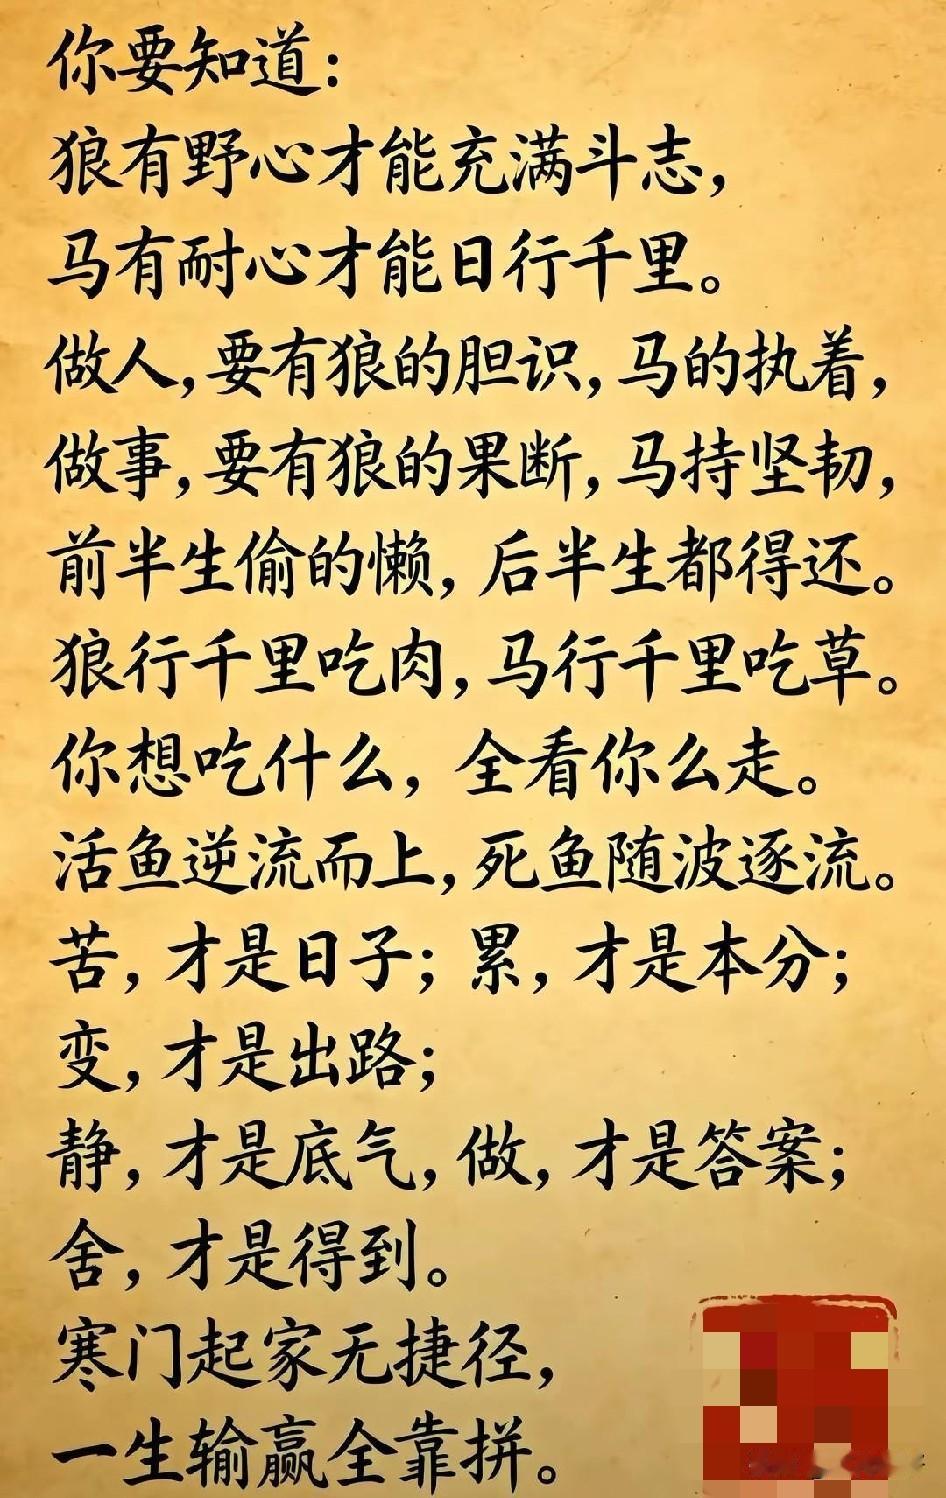 你要知道：
狼有野心才能充满斗志，
马有耐心才能日行千里。
做人，要有狼的胆识，马的执着，
做事，要有狼的果断，马持坚韧，
前半生偷的懒，后半生都得还。
狼行千里吃肉，马行千里吃草。
你想吃什么，全看你么走。
活鱼逆流而上，死鱼随波逐流。
苦，才是日子；累，才是本分；
变，才是出路；
静，才是底气，做，才是答案；
舍，才是得到。
寒门起家无捷径，
一生输赢全靠拼。